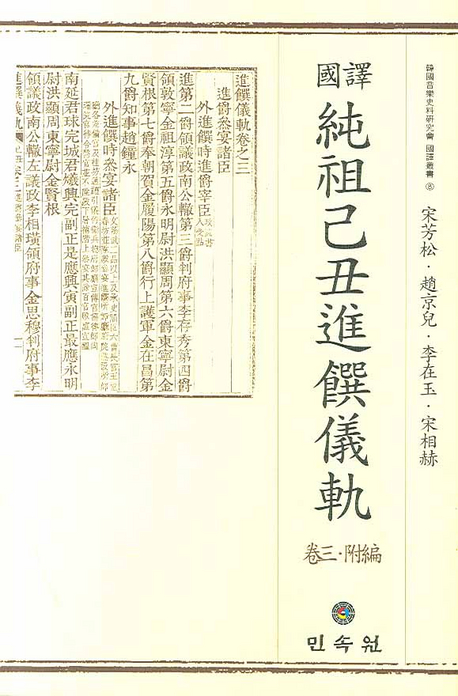 韓國音樂史料研究會 國譯叢書
宋芳松·趙京兒·李在玉·宋相赫
國譯
純祖己丑進饌儀軌
卷三·附編
민속원
進饌儀軌卷之三
進爵參宴諸臣
外進饌時進爵宰臣
進第二爵領議政南公轍第三爵判府事李存秀第四爵
領敦寧金祖淳第五爵永明尉洪顯周第六爵東寧尉金
賢根第七爵奉朝賀金履陽第八爵行上護軍金在昌第
九爵知事趙鐘永
外進饌時參宴諸臣
南延君球完城君爔興完副正是應興寅副正最應永明
尉洪顯周東寧尉金賢根
領議政南公轍左議政李相璜領府事金思穆判府事李
進饌儀軌